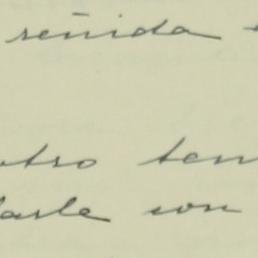 señida
otro ten
darle con